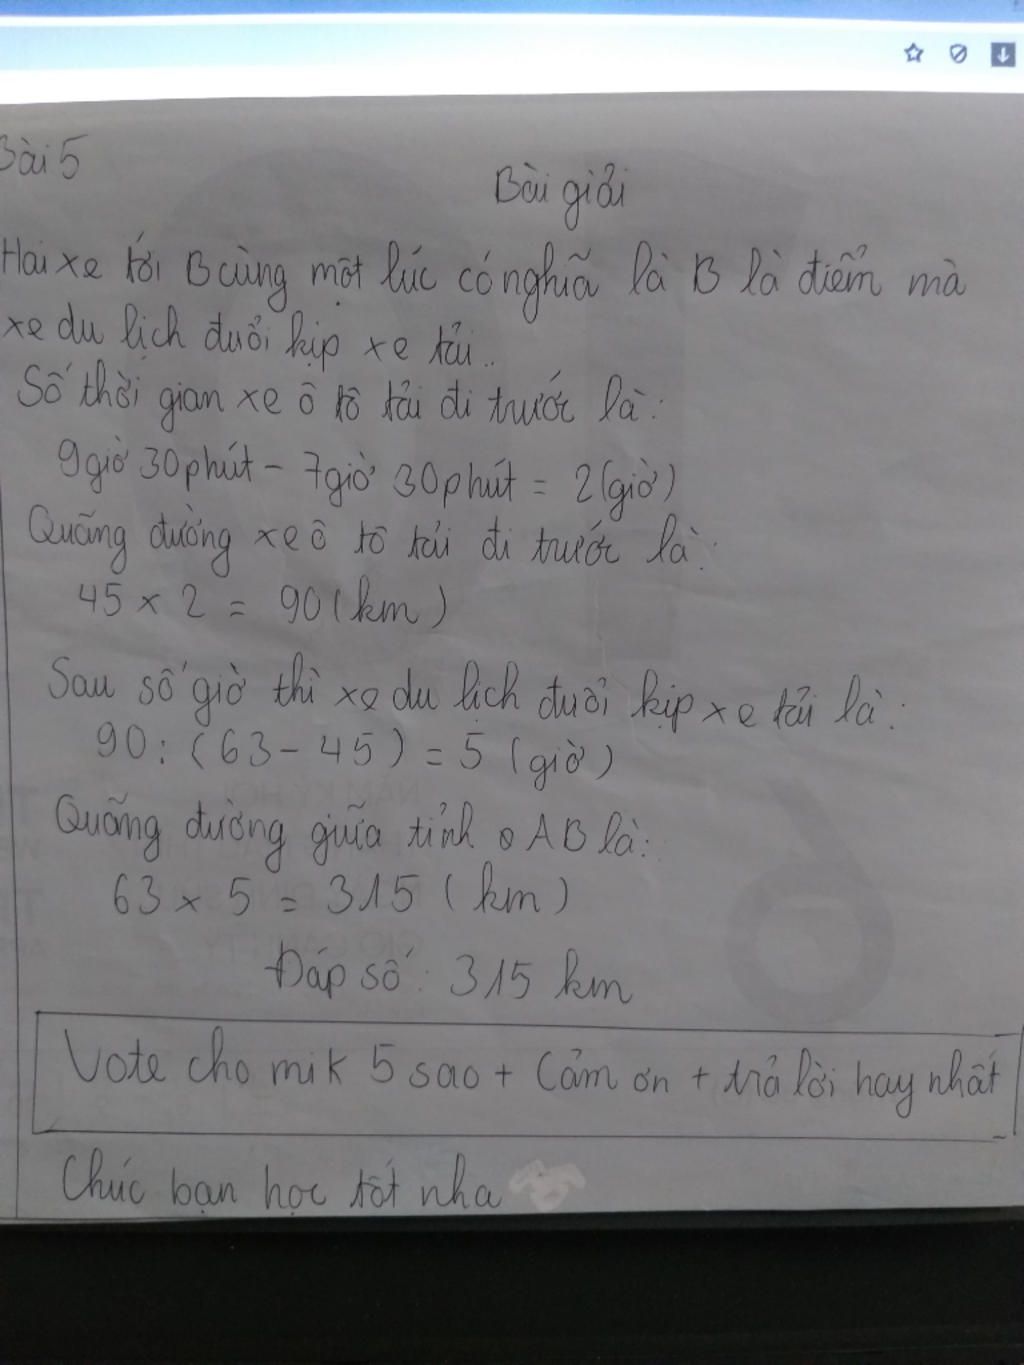 Bài 5
Bài giải
Hai xe tới B cùng một lúc có nghĩa là B là điểm mà
xe du lịch đuổi kịp xe tải..
Số thời gian xe ô tô tải đi trước là:
9giờ 30phút - 7giờ 30phút = 2(giờ)
Quãng đường xe ô tô tải đi trước là:
45 x 2 = 90 (km)
Sau số giờ thì xe du lịch đuổi kịp xe tải là:
90 : (63 - 45) = 5 (giờ)
Quãng đường giữa tỉnh AB là:
63 x 5 = 315 (km)
Đáp số: 315 km
Vote cho mik 5 sao + Cảm ơn + trả lời hay nhất
Chúc bạn học tốt nha